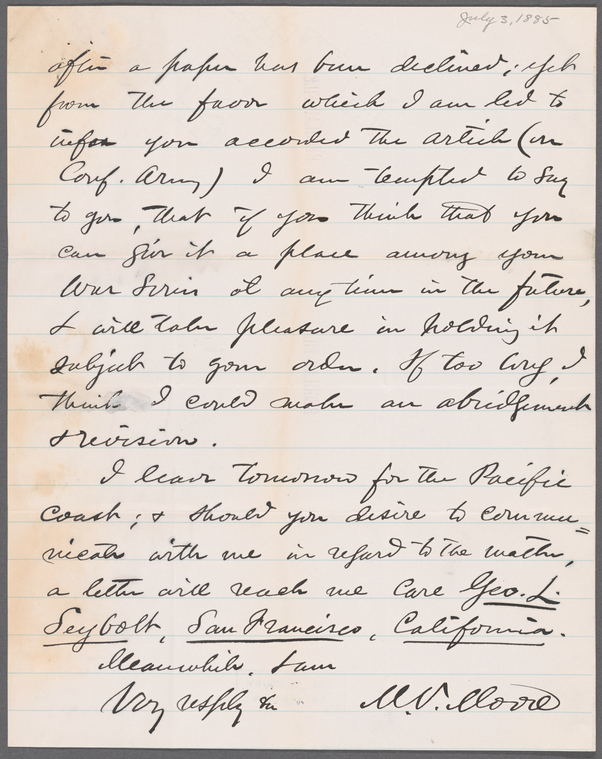 July 3, 1885
after a paper has been declined; yet
from the favor which I am led to
infer you accorded the article (on
Conf. Army) I am tempted to say
to you, that if you think that you
can give it a place among your
War Series at any time in the future,
I will take pleasure in holding it
subject to your order. If too long, I
think I could make an abridgement
& revision.
I leave tomorrow for the Pacific
Coast; & should you desire to commu=
nicate with me in regard to the matter,
a letter will reach me care Geo. L.
Seybolt, San Francisco, California.
Meanwhile, I am
Very resply &c M. V. Moore